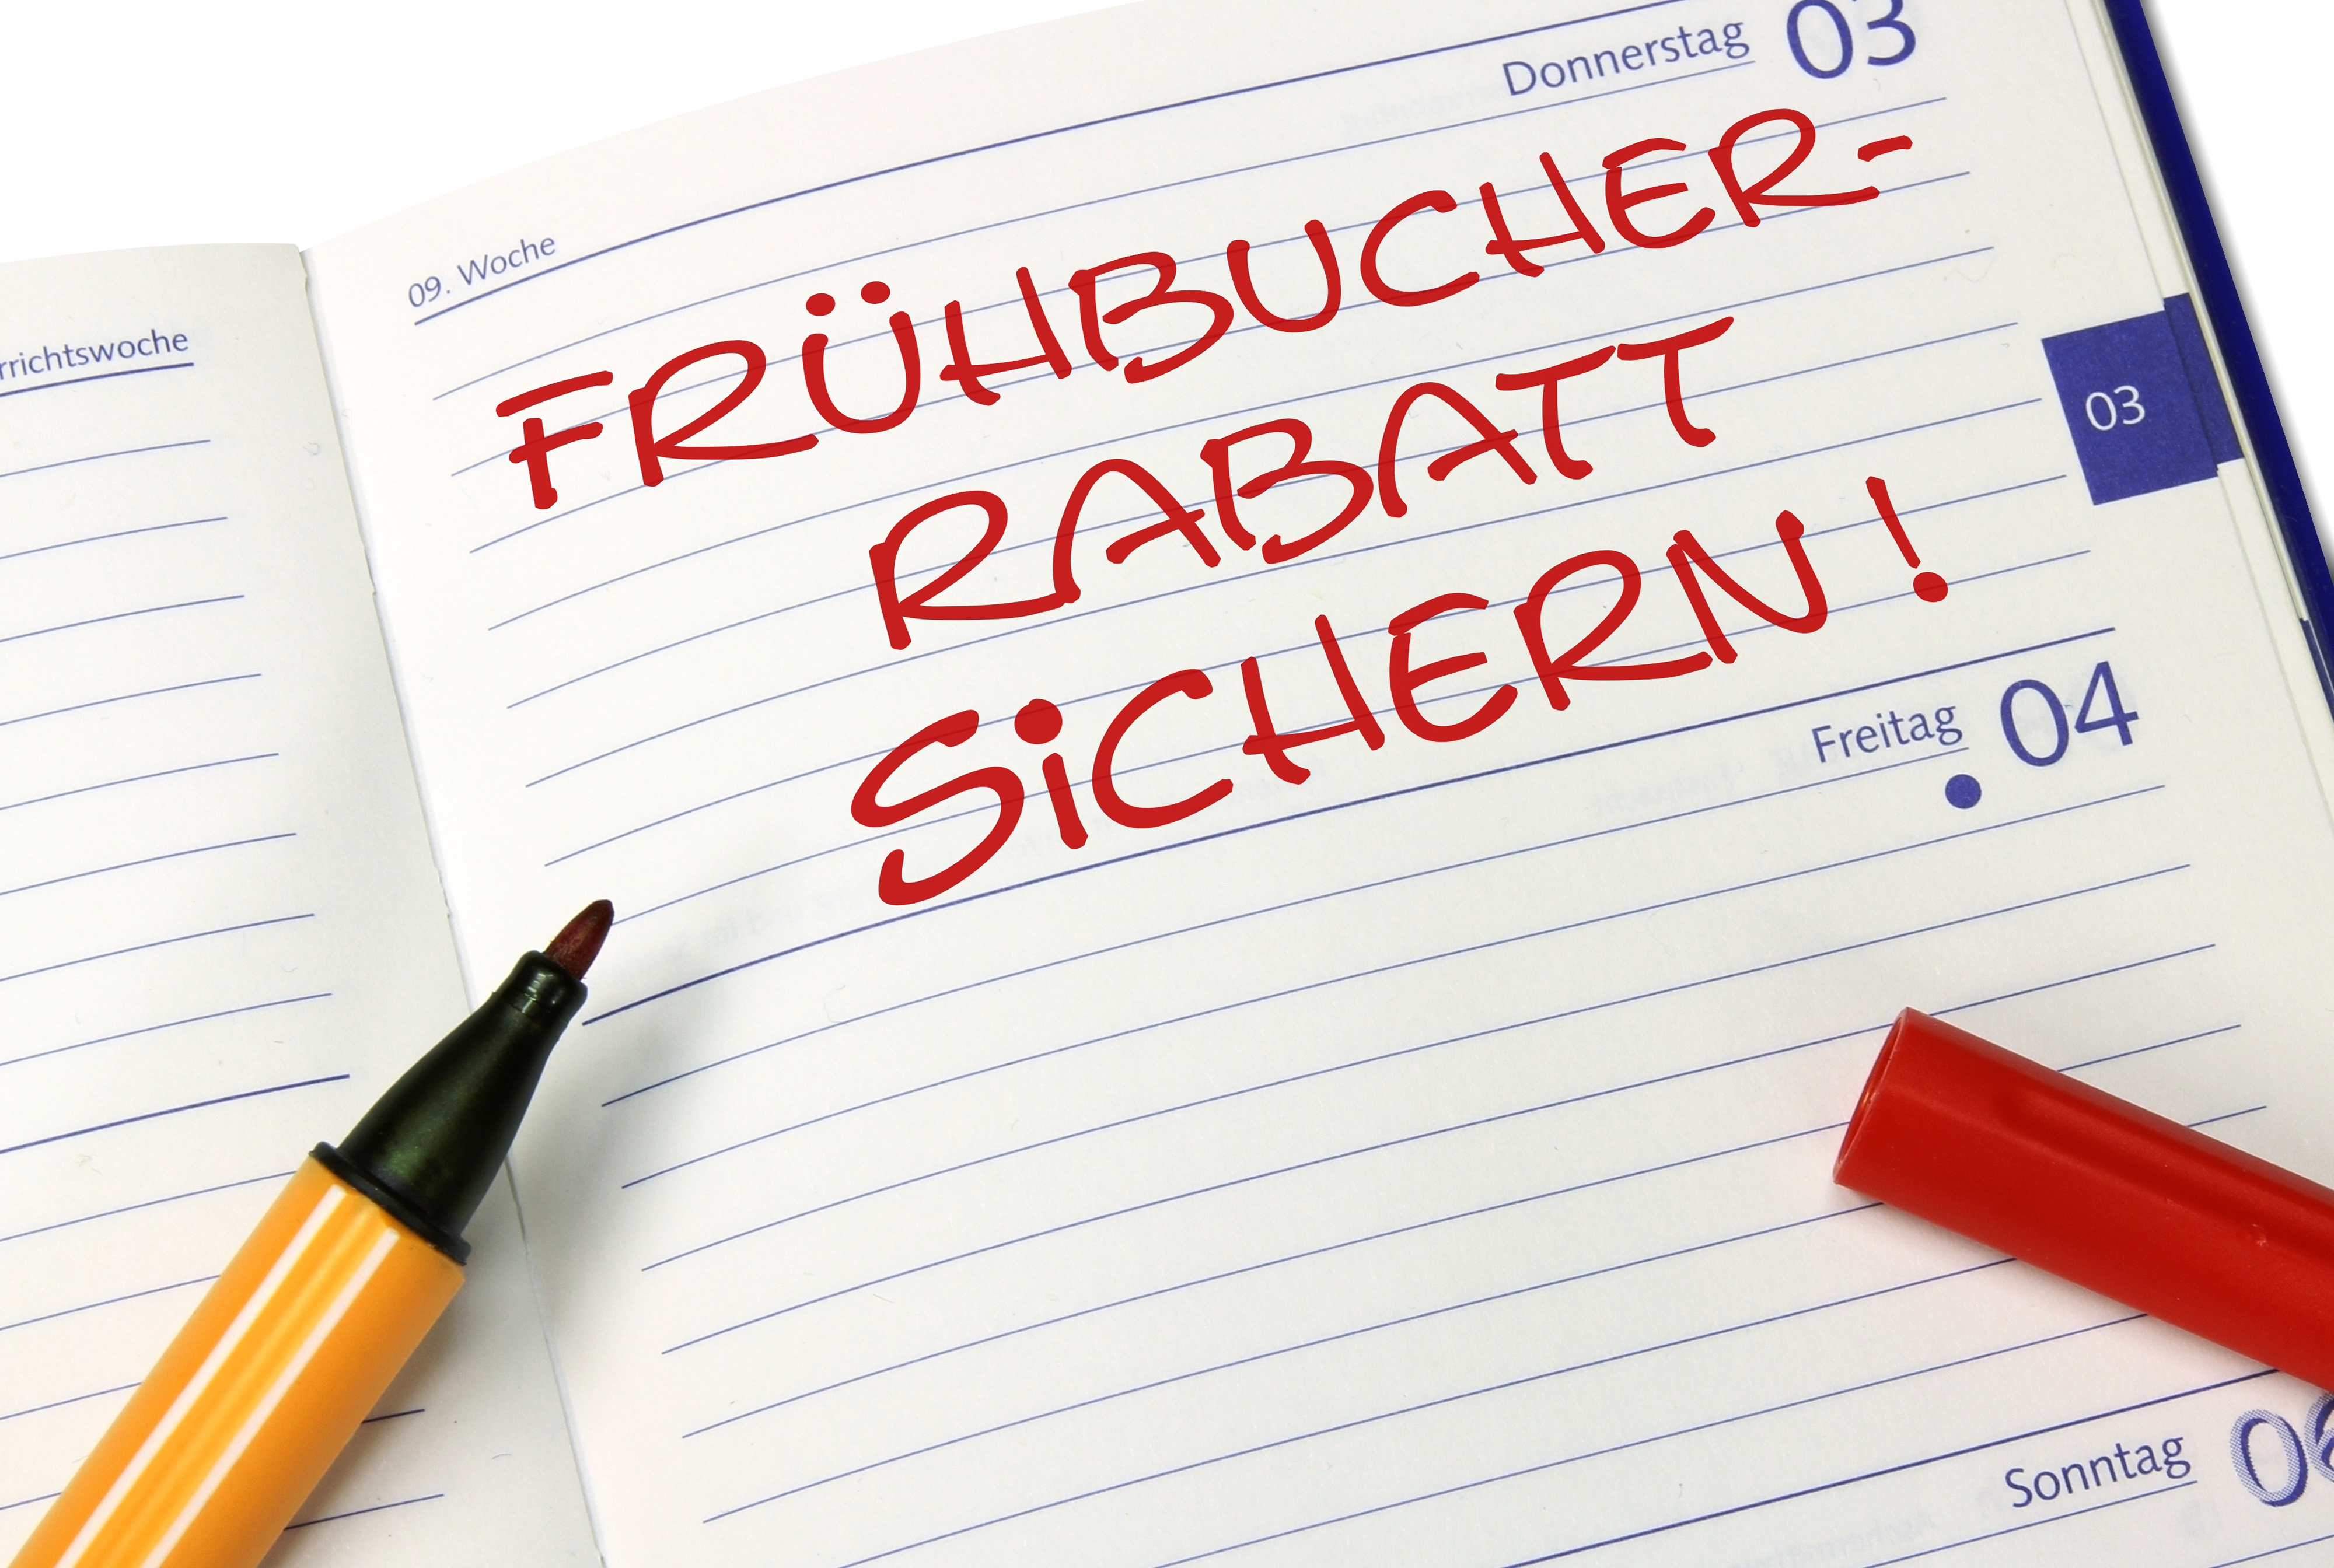 Donnerstag 03
09. Woche
rrichtswoche
FRÜHBUCHER-
RABATT
SiCHERN!
03
Freitag 04
Sonntag 06